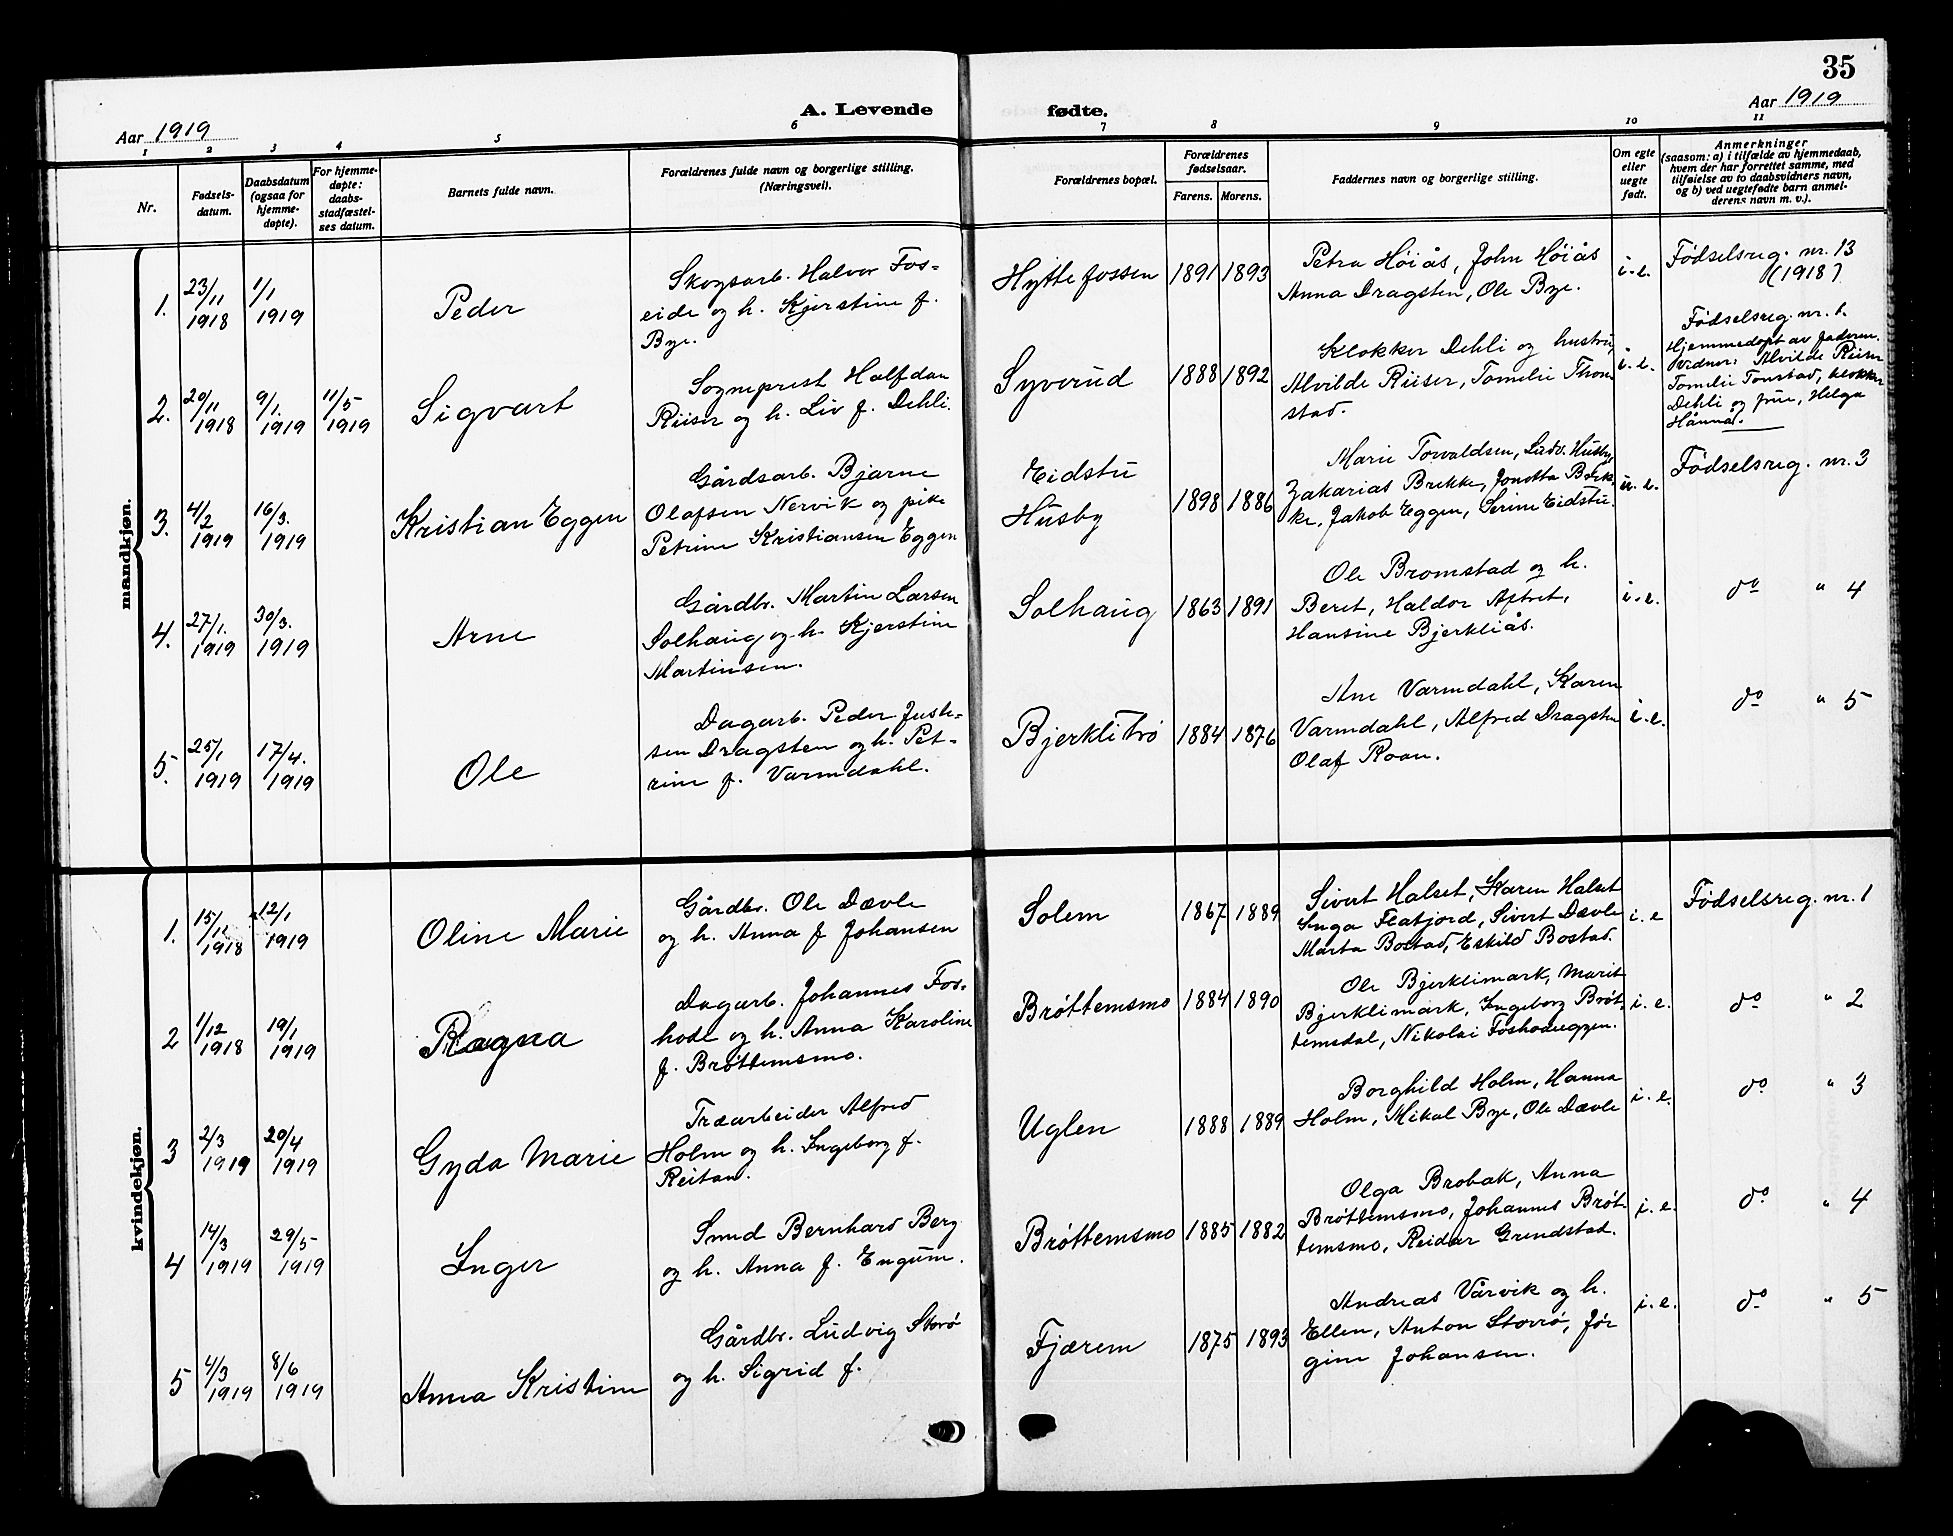 35
A. Levende fødte.
Aar 1919
Aar 1919
1 2 3 4 5 6 7 8 9 10 11
Nr.
Fødsels-
datum.
Daabsdatum
(ogsaa for
hjemme-
døpte).
For hjemme-
døpte:
daabs-
stadfæstel-
ses datum.
Barnets fulde navn.
Forældrenes fulde navn og borgerlige stilling.
(Næringsvei).
Forældrenes bopæl.
Forældrenes
fødselsaar.
Farens. Morens.
Faddernes navn og borgerlige stilling.
Om egte
eller
uegte
født.
Anmerkninger
(saasom: a) i tilfælde av hjemmedaab,
hvem der har forrettet samme, med
tilføielse av to daabsvidners navn,
og b) ved uegtefødte barn anmel-
derens navn m. v.).
mandkjøn.
1. 23/11 1918 1/1 1919 Peder
Skogsarb. Halvor Fos-
eide og h. Kjerstine f.
Bye.
Hyttefossen 1891 1893
Petra Høiås, John Høiås
Anna Dragsten, Ole Bye.
i. e.
Fødselsreg. nr. 13
(1918)
2. 20/11 1918 9/1. 1919 11/5 1919 Sigvart
Sogneprest Halfdan
Riiser og h. Liv f. Dehli.
Syverud 1888 1892
Klokker Dehli og hustru,
Alvilde Riiser, Tomelie Thon
stad.
i. e.
Fødselsreg. nr. 1.
Hjemmedøpt av faderen.
Vidner: Alvilde Riiser
Tomelie Tonstad, klokker
Dehli og frue, Helga
Hånna.
3. 4/2 1919 16/3. 1919 Kristian Eggen
Gårdsarb. Bjarne
Olafsen Nervik og pike
Petrine Kristiansen Eggen
Eidstu
Husby 1898 1886
Marie Torvaldsen, Ludv. Husby,
Zakarias Brekke, Jonetta Brek-
ke, Jakob Eggen, Serine Eidstu.
u. e.
Fødselsreg. nr. 3
4. 27/1. 1919 30/3. 1919 Arne
Gårdbr. Martin Larsen
Solhaug og h. Kjerstine
Martinsen.
Solhaug 1863 1891
Ole Bromstad og h.
Beret, Haldor Aftret,
Hansine Bjerkliås.
i. e.
do " 4
5. 25/1 1919 17/4. 1919 Ole
Dagarb. Peder Juste-
sen Dragsten og h. Pet-
rine f. Varmdahl.
Bjerklitrø 1884 1876
Ane Varmdahl, Karen
Varmdahl, Alfred Dragsten
Olaf Roan.
i. e.
do " 5
kvindekjøn.
1. 15/12 1918 12/1 1919 Oline Marie
Gårdbr. Ole Dævle
og h. Anna f Johansen
Solem 1867 1889
Sivert Halset, Karen Halset
Inga Flatjord, Sivert Dævle
Marta Bostad, Eskild Bostad.
i. e
Fødselsreg. nr. 1
2 1/12 1918 19/1 1919 Ragna
Dagarb. Johannes Fos-
hode og h. Anna Karoline
f. Brøttemsmo.
Brøttemsmo 1884 1890
Ole Bjerklimark, Marit
Bjerklimark, Ingeborg Brøt-
temsdal, Nikolai Foshodeggen.
i. e.
do " 2
3 2/3 1919 20/4 1919 Gyda Marie
Træarbeider Alfred
Holm og h. Ingeborg f.
Reitan.
Uglen 1888 1889
Borghild Holm, Hanna
Holm, Mikal Bye, Ole Dævle
i. e.
do " 3
4 14/3 1919 29/5 1919 Inger
Smed Bernhard Berg
og h. Anna f. Engum.
Brøttemsmo 1885 1882
Olga Brobak, Anna
Brøttemsmo, Johannes Brøt-
temsmo, Reidar Grendstad.
i. e.
do " 4
5 4/3 1919 8/6 1919 Anna Kristine
Gårdbr. Ludvig Storrø
og h. Sigrid f.
Fjærem 1875 1893
Andreas Vårvik og h.
Ellen, Anton Storrø, Jør
gine Johansen.
i. e.
do " 5